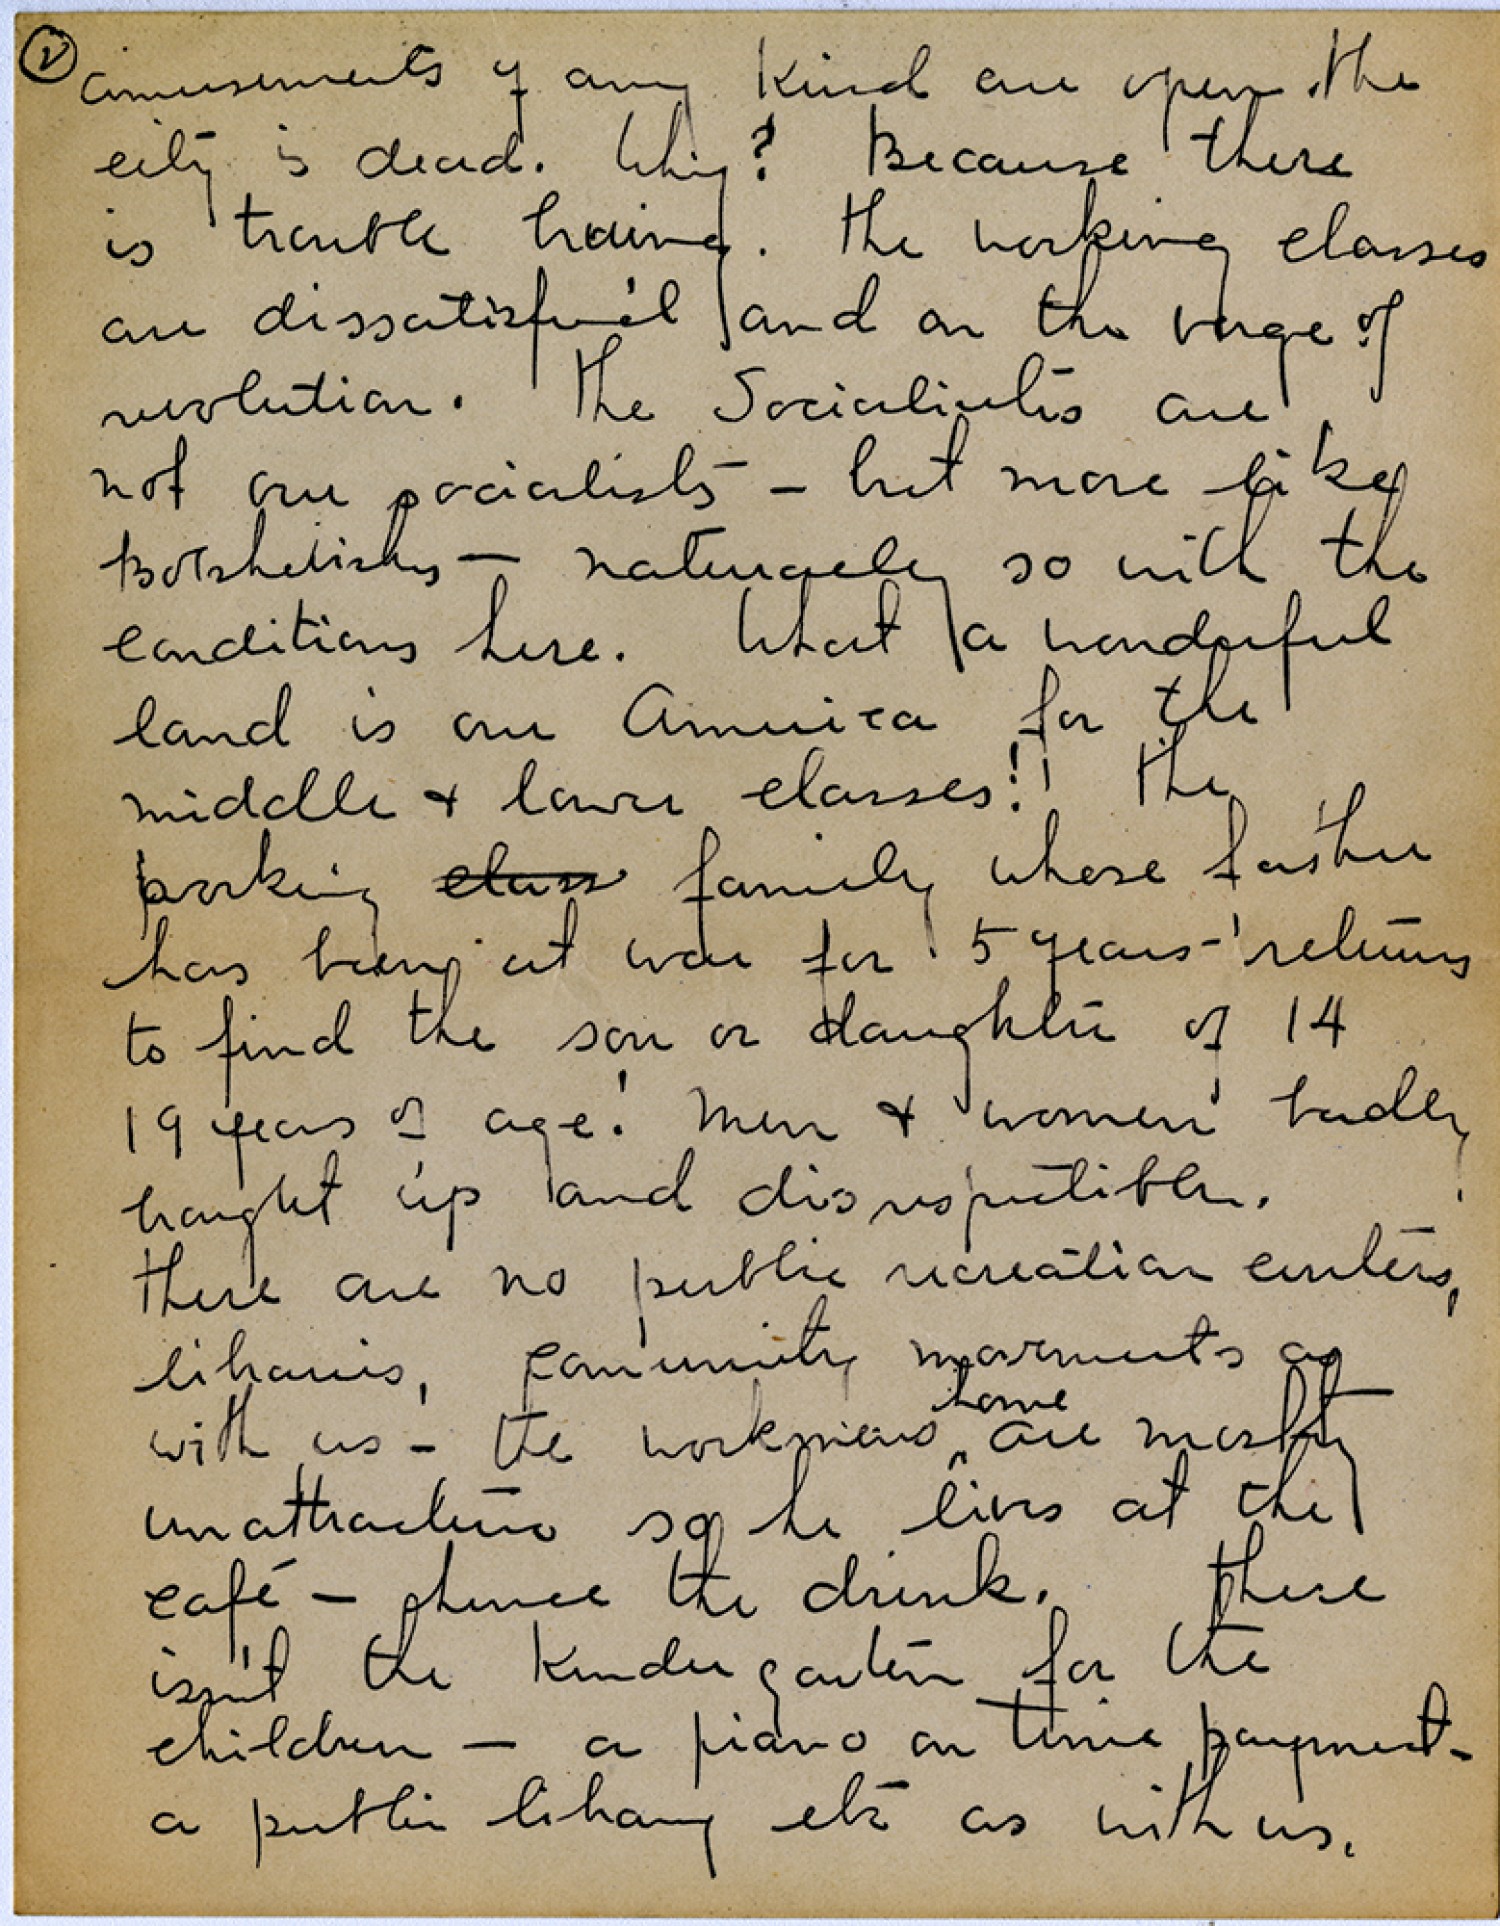 2 amusements of any kind are open. The
city is dead. Why? Because there
is trouble brewing. The working classes
are dissatisfied and on the verge of
revolution. The Socialists are
not our socialists – but more like
Bolshevisks – naturally so with the
conditions here. What a wonderful
land is our America for the
middle & lower classes!! The
working class family whose father
has being at war for 5 years – returns
to find the son or daughter of 14
19 years of age! Men & women badly
brought up and disrespectible.
There are no public recreation centers,
libraries, community movements as
with us – the workmens home are mostly
unattractive so he lives at the
café – hence the drink. There
isn't the Kindergarten for the
children – a piano on time payment –
a public library etc as with us.